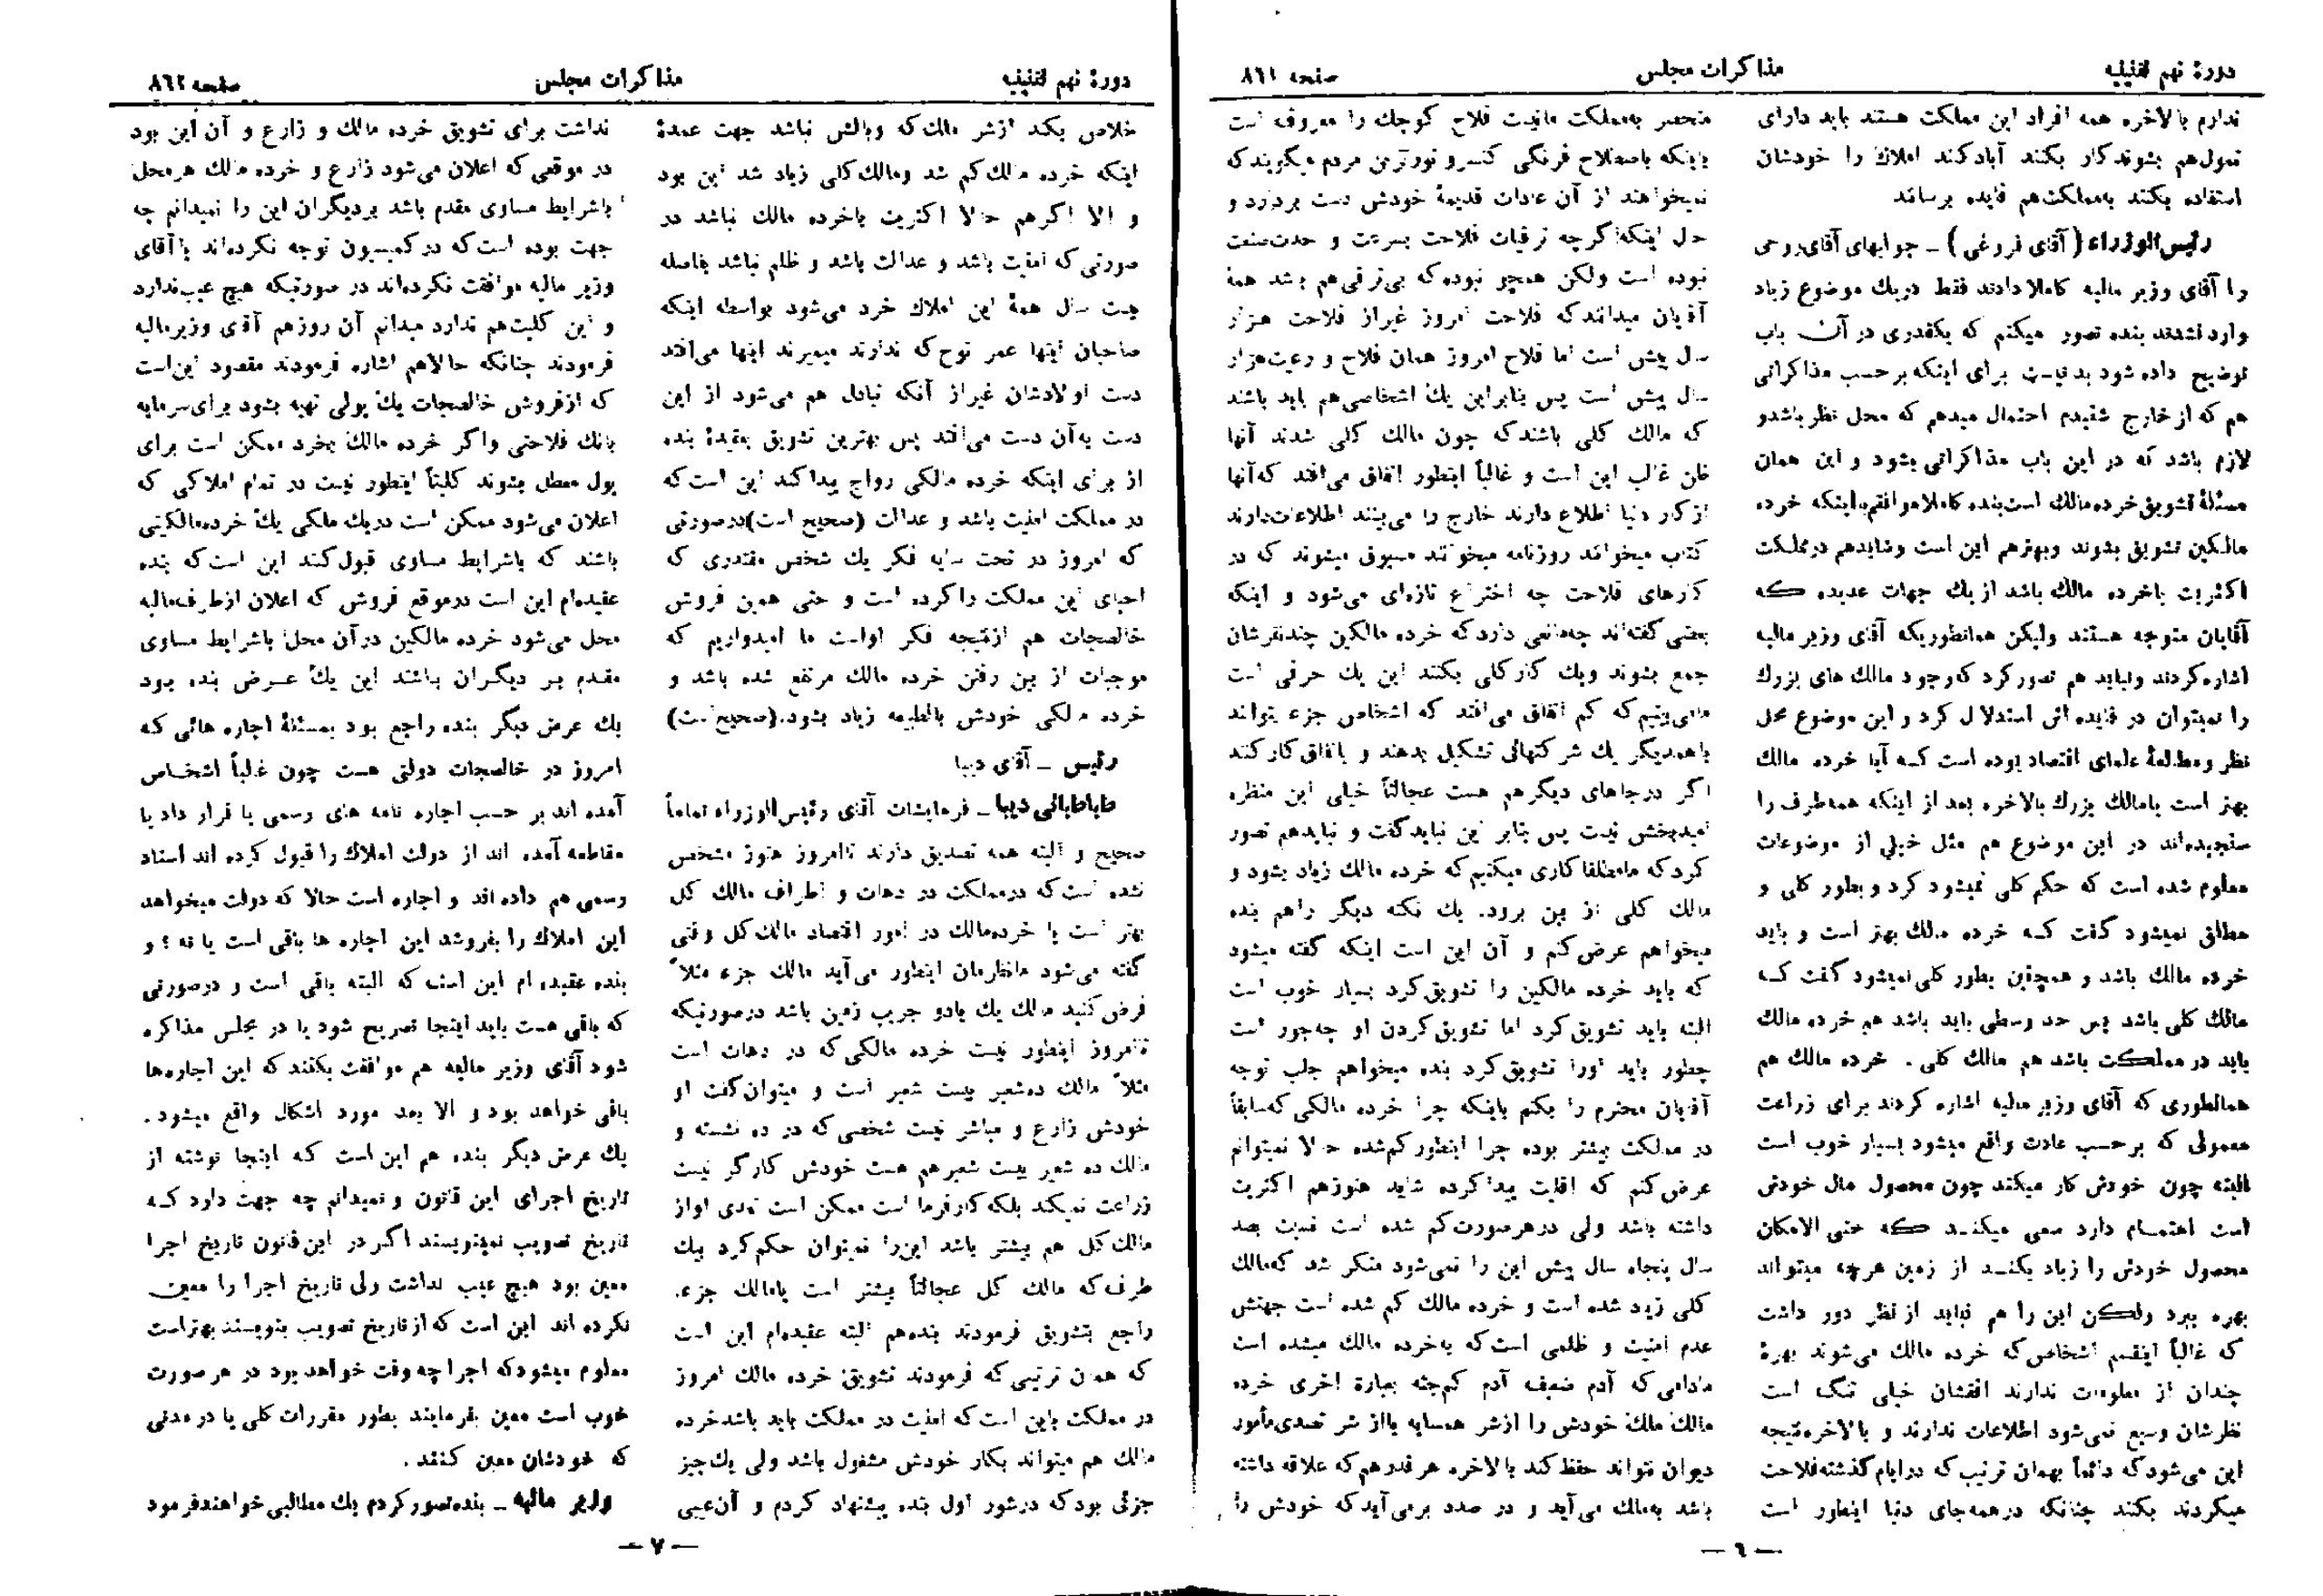 دورهٔ نهم تقنینیه
مذاکرات مجلس
صفحه ۸۶۱
ندارم بالاخره همه افراد این مملکت هستند باید دارای
تمول هم بشوند کار بکنند آباد کنند املاك را خودشان
استفاده بکنند بمملکت هم فایده برسانند
رئیس‌الوزراء (آقای فروغی) ـ جوابهای آقای روحی
را آقای وزیر مالیه کاملا دادند فقط دریك موضوع زیاد
وارد نشدند بنده تصور میکنم که یکقدری در آن باب
توضیح داده شود بد نیست برای اینکه بر حسب مذاکراتی
هم که از خارج شنیدم احتمال میدهم که محل نظر باشد و
لازم باشد که در این باب مذاکراتی بشود و این همان
مسئلهٔ تشویق خرده مالك است بنده کاملا موافقم باینکه خرده
مالکین تشویق بشوند و بهتر هم این است وشاید هم در مملکت
اکثریت باخرده مالك باشد از یك جهات عدیده که
آقایان متوجه هستند ولیکن همانطوریکه آقای وزیر مالیه
اشاره کردند ونباید هم تصور کرد که وجود مالك های بزرگ
را نمیتوان در فایده اش استدلال کرد و این موضوع محل
نظر ومطالعهٔ علمای اقتصاد بوده است که آیا خرده مالك
بهتر است یامالك بزرك بالاخره بعد از اینکه همه طرف را
سنجیده‌اند در این موضوع هم مثل خیلی از موضوعات
معلوم شده است که حکم کلی نمیشود کرد و بطور کلی و
مطلق نمیشود گفت که خرده مالك بهتر است و باید
خرده مالك باشد و همچنین بطور کلی نمیشود گفت که
مالك کلی باشد پس حد وسطی باید باشد هم خرده مالك
باید در مملکت باشد هم مالك کلی . خرده مالك هم
همانطوری که آقای وزیر مالیه اشاره کردند برای زراعت
معمولی که بر حسب عادت واقع میشود بسیار خوب است
البته چون خودش کار میکند چون محصول مال خودش
است اهتمام دارد سعی میکند که حتی الامکان
محصول خودش را زیاد بکند از زمین هرچه میتواند
بهره ببرد ولکن این را هم نباید از نظر دور داشت
که غالباً اینقسم اشخاص که خرده مالك می‌شوند بهرهٔ
چندان از معلومات ندارند افقشان خیلی تنگ است
نظرشان وسیع نمی‌شود اطلاعات ندارند و بالاخره نتیجه
این می‌شود که دائماً بهمان ترتیب که در ایام گذشته فلاحت
میکردند بکنند چنانکه در همه جای دنیا اینطور است
منحصر بمملکت مانیست فلاح کوچك را معروف است
باینکه باصطلاح فرنگی کنسرواتورترین مردم میگویند که
نمیخواهند از آن عادات قدیمهٔ خودش دست بردارد و
حال اینکه اگرچه ترقیات فلاحت بسرعت و حدت صنعت
نبوده است ولکن همچو نبوده که بی‌ترقی هم باشد همهٔ
آقایان میدانند که فلاحت امروز غیر از فلاحت هزار
سال پیش است اما فلاح امروز همان فلاح و رعیت هزار
سال پیش است پس بنابراین یك اشخاصی هم باید باشند
که مالك کلی باشند که چون مالك کلی شدند آنها
ظن غالب این است و غالباً اینطور اتفاق می‌افتد که آنها
از کار دنیا اطلاع دارند خارج را می‌بینند اطلاعات دارند
کتاب میخوانند روزنامه میخوانند مسبوق میشوند که در
کارهای فلاحت چه اختراع تازه‌ای می‌شود و اینکه
بعضی گفته‌اند چه مانعی دارد که خرده مالکین چند نفرشان
جمع بشوند ویك کار کلی بکنند این یك حرفی است
مامی‌بینیم که کم اتفاق می‌افتد که اشخاص جزء بتوانند
باهمدیگر یك شرکتهائی تشکیل بدهند و باتفاق کار کنند
اگر در جاهای دیگر هم هست عجالتاً خیلی این منظره
امیدبخش نیست پس بنابر این نباید گفت و نباید هم تصور
کرد که مامطلقا کاری میکنیم که خرده مالك زیاد بشود و
مالك کلی از بین برود. یك نکته دیگر را هم بنده
میخواهم عرض کنم و آن این است اینکه گفته میشود
که باید خرده مالکین را تشویق کرد بسیار خوب است
البته باید تشویق کرد اما تشویق کردن او چه جور است
چطور باید اورا تشویق کرد بنده میخواهم جلب توجه
آقایان محترم را بکنم باینکه چرا خرده مالکی که سابقاً
در مملکت بیشتر بوده چرا اینطور کم شده حالا نمیتوانم
عرض کنم که اقلیت پیدا کرده شاید هنوز هم اکثریت
داشته باشد ولی در هر صورت کم شده است نسبت بصد
سال پنجاه سال پیش این را نمی‌شود منکر شد که مالك
کلی زیاد شده است و خرده مالك کم شده است جهتش
عدم امنیت و ظلمی است که به خرده مالك میشده است
مادامی که آدم ضعیف آدم کم جثه بعبارة اخری خرده
مالك ملك خودش را از شر همسایه یا از شر تعدی مأمور
دیوان نتواند حفظ کند بالاخره هر قدر هم که علاقه داشته
باشد به ملك می‌آید و در صدد برمی‌آید که خودش را
— ٦ —
دورهٔ نهم تقنینیه
مذاکرات مجلس
صفحه ۸۶۲
خلاص بکند از شر ملك که وبالش نباشد جهت عمدهٔ
اینکه خرده مالك کم شد ومالك کلی زیاد شد این بود
و الا اگر هم حالا اکثریت باخرده مالك نباشد در
صورتی که امنیت باشد و عدالت باشد و ظلم نباشد بفاصله
بیست سال همهٔ این املاك خرد می‌شود بواسطه اینکه
صاحبان اینها عمر نوح که ندارند میمیرند اینها می‌افتد
دست اولادشان غیر از آنکه تبادل هم می‌شود از این
دست به آن دست می‌افتد پس بهترین تشویق بعقیدهٔ بنده
از برای اینکه خرده مالکی رواج پیدا کند این است که
در مملکت امنیت باشد و عدالت (صحیح است) در صورتی
که امروز در تحت سایه فکر یك شخص مقتدری که
احیای این مملکت را کرده است و حتی همین فروش
خالصجات هم از نتیجه فکر اواست ما امیدواریم که
موجبات از بین رفتن خرده مالك مرتفع شده باشد و
خرده مالکی خودش بالطبیعه زیاد بشود.(صحیح است)
رئیس ـ آقای دیبا
طباطبائی دیبا ـ فرمایشات آقای رئیس‌الوزراء تماماً
صحیح و البته همه تصدیق دارند تاامروز هنوز مشخص
نشده است که در مملکت در دهات و اطراف مالك کل
بهتر است یا خرده مالك در امور اقتصاد مالك کل وقتی
گفته می‌شود مانظرمان اینطور می‌آید مالك جزء مثلاً
فرض کنید مالك یك یادو جریب زمین باشد در صورتیکه
تاامروز اینطور نیست خرده مالکی که در دهات است
مثلاً مالك ده شعیر بیست شعیر است و میتوان گفت او
خودش زارع و مباشر نیست شخصی که در ده نشسته و
مالك ده شعیر بیست شعیر هم هست خودش کارگر نیست
زراعت نمیکند بلکه کارفرما است ممکن است تعدی او از
مالك کل هم بیشتر باشد این را نمیتوان حکم کرد بیك
طرف که مالك کل عجالتاً بیشتر است یامالك جزء.
راجع بتشویق فرمودند بنده هم البته عقیده‌ام این است
که همان ترتیبی که فرمودند تشویق خرده مالك امروز
در مملکت باین است که امنیت در مملکت باید باشد خرده
مالك هم میتواند بکار خودش مشغول باشد ولی یك چیز
جزئی بود که در شور اول بنده پیشنهاد کردم و آن عیبی
نداشت برای تشویق خرده مالك و زارع و آن این بود
در موقعی که اعلان می‌شود زارع و خرده مالك هر محل
باشرایط مساوی مقدم باشد بر دیگران این را نمیدانم چه
جهت بوده است که در کمیسیون توجه نکرده‌اند یا آقای
وزیر مالیه موافقت نکرده‌اند در صورتیکه هیچ عیب ندارد
و این کلیت هم ندارد میدانم آن روز هم آقای وزیر مالیه
فرمودند چنانکه حالاهم اشاره فرمودند مقصود این است
که از فروش خالصجات یك پولی تهیه بشود برای سرمایه
بانك فلاحتی واگر خرده مالك بخرد ممکن است برای
پول معطل بشوند کلیتاً اینطور نیست در تمام املاکی که
اعلان می‌شود ممکن است در یك ملکی یك خرده مالکینی
باشند که باشرایط مساوی قبول کنند این است که بنده
عقیده‌ام این است در موقع فروش که اعلان از طرف مالیه
محل می‌شود خرده مالکین در آن محل باشرایط مساوی
مقدم بر دیگران باشند این یك عرض بنده بود
یك عرض دیگر بنده راجع بود بمسئلهٔ اجاره هائی که
امروز در خالصجات دولتی هست چون غالباً اشخاص
آمده اند بر حسب اجاره نامه های رسمی یا قرار داد یا
مقاطعه آمده اند از دولت املاك را قبول کرده اند اسناد
رسمی هم داده اند و اجاره است حالا که دولت میخواهد
این املاك را بفروشد این اجاره ها باقی است یا نه ؟ و
بنده عقیده ام این است که البته باقی است و در صورتی
که باقی هست باید اینجا تصریح شود یا در مجلس مذاکره
شود آقای وزیر مالیه هم موافقت بکنند که این اجاره‌ها
باقی خواهد بود و الا بعد مورد اشکال واقع میشود .
یك عرض دیگر بنده هم این است که اینجا نوشته از
تاریخ اجرای این قانون و نمیدانم چه جهت دارد که
تاریخ تصویب نمینویسند اگر در این قانون تاریخ اجرا
معین بود هیچ عیب نداشت ولی تاریخ اجرا را معین
نکرده اند این است که از تاریخ تصویب بنویسند بهتر است
معلوم میشود که اجرا چه وقت خواهد بود در هر صورت
خوب است معین بفرمایند بطور مقررات کلی یا در مدتی
که خودشان معین کنند .
وزیر مالیه ـ بنده تصور کردم یك مطالبی خواهند فرمود
— ۷ —